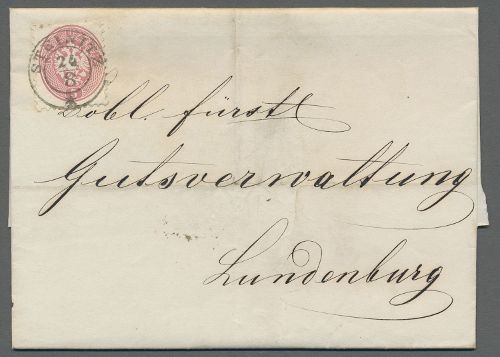 STEINITZ
24
8
Löbl. fürstl
Gutsverwaltung
Lundenburg